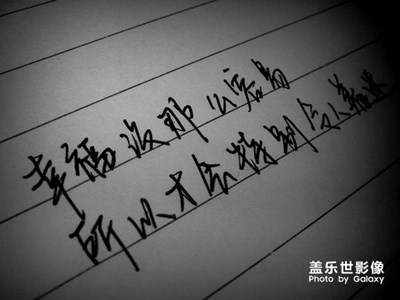 幸福没那么容易
所以才会特别令人着迷
盖乐世影像
Photo by Galaxy